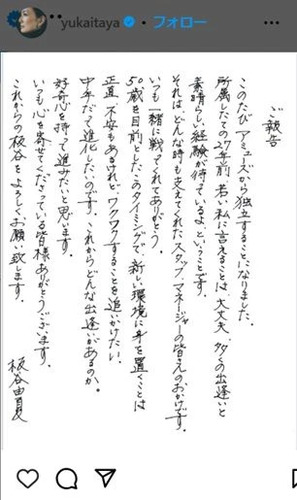 yukitaya
フォロー
ご報告
このたび アミューズから独立することになりました。
所属したての27年前 若い私に言えることは、大丈夫、多くの出逢いと
素晴らしい経験が待っているよ、ということです。
それはどんな時も支えてくれたスタッフ、マネージャーの皆さんのおかげです。
いつも一緒に戦ってくれてありがとう。
50歳を目前としたこのタイミングで、新しい環境に身を置くことは
正直、不安もあるけれど、ワクワクすることを追いかけたい。
中年だって進化したいのです。これからどんな出逢いがあるのか。
好奇心を持って進みたいと思います。
いつも心を寄せてくださっている皆様ありがとうございます。
これからの板谷をよろしくお願い致します。
板谷由夏